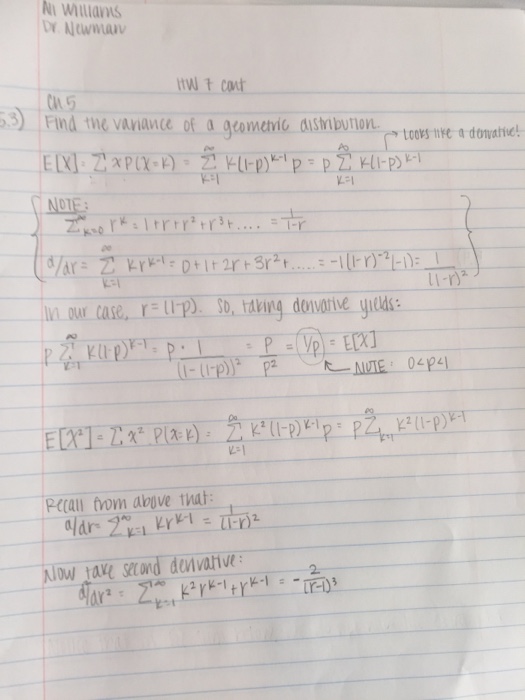 Williams
Dr. Newman
HW 7 cont
Ch 5
5.3) Find the variance of a geometric distribution.
→ Looks like a derivative!
E[X] = Σ x P(X=k) = Σ_{k=1}^∞ k(1-p)^{k-1} p = p Σ_{k=1}^∞ k(1-p)^{k-1}
NOTE:
Σ_{k=0}^∞ r^k = 1+r+r²+r³+.... = 1/(1-r)
d/dr = Σ_{k=1}^∞ kr^{k-1} = 0+1+2r+3r²+..... = -1(1-r)^{-2}(-1) = 1/(1-r)²
In our case, r=(1-p). So, taking derivative yields:
p Σ_{k=1}^∞ k(1-p)^{k-1} = p · 1/(1-(1-p))² = p/p² = 1/p = E[X]
← NOTE: 0<p<1
E[X²] = Σ x² P(X=k) = Σ_{k=1}^∞ k²(1-p)^{k-1} p = p Σ_{k=1}^∞ k²(1-p)^{k-1}
Recall from above that:
d/dr = Σ_{k=1}^∞ kr^{k-1} = 1/(1-r)²
Now take second derivative:
d/dr² = Σ_{k=1}^∞ k²r^{k-1}+r^{k-1} = -2/(r-1)³